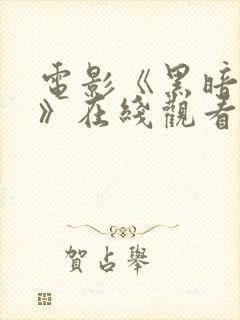 電影《黑暗
》在綫觀看
賀占舉